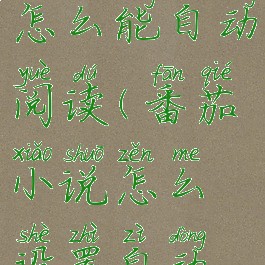 怎么能自动
yuè dú fān qié
阅读(番茄
xiǎo shuō zěn me
小说怎么
shè zhì zì dòng
设置自动